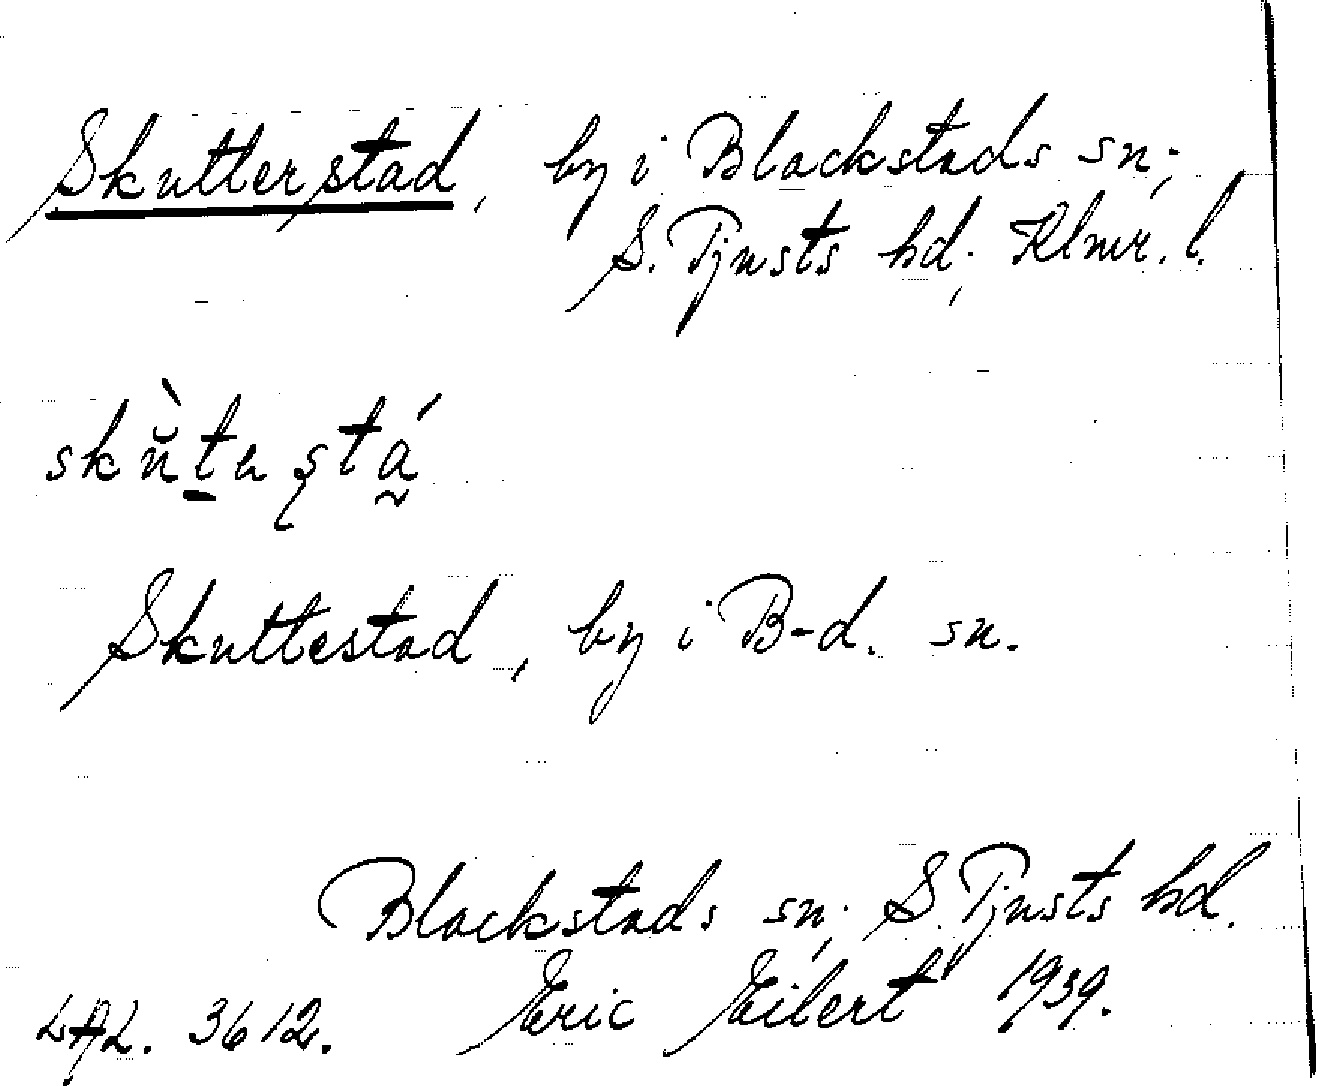 Skutterstad, by i Blackstads sn.,
S. Tjusts hd., Klmr. l.
Skuttestad, by i B-d. sn.
Blackstads sn., S. Tjusts hd.
LAL. 3612. Eric Eilert 1939.